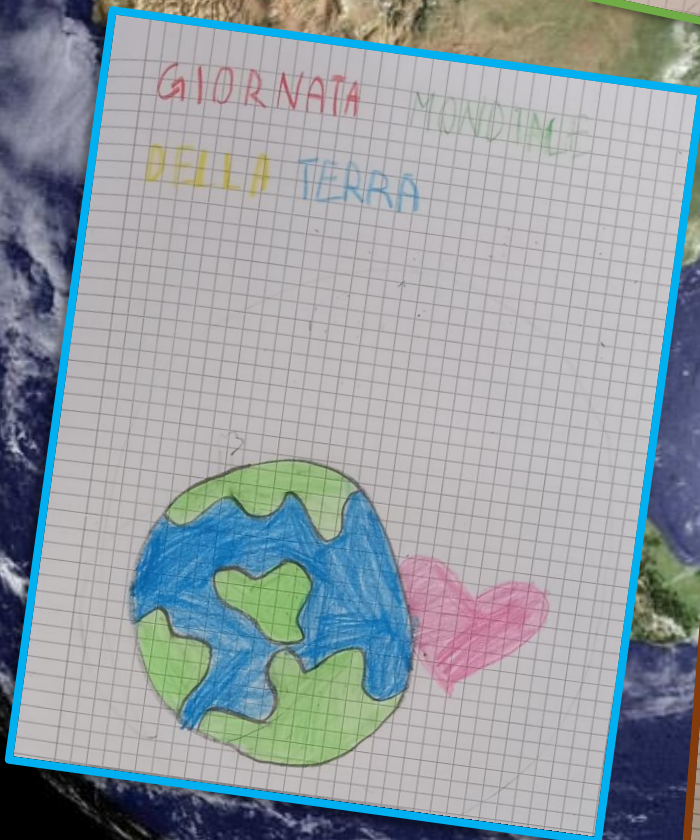 GIORNATA MONDIALE
DELLA TERRA